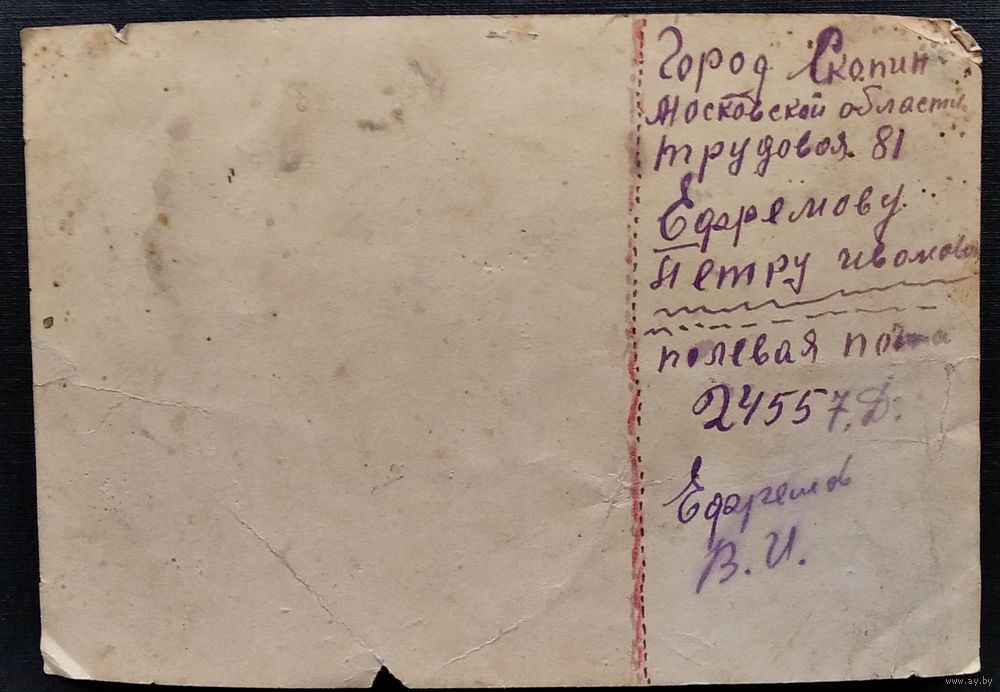 Город Скопин
Московской области
трудовая 81
Ефремову
Петру ивановичу
полевая почта
24557.Д.
Ефремов
В.И.
www.ay.by